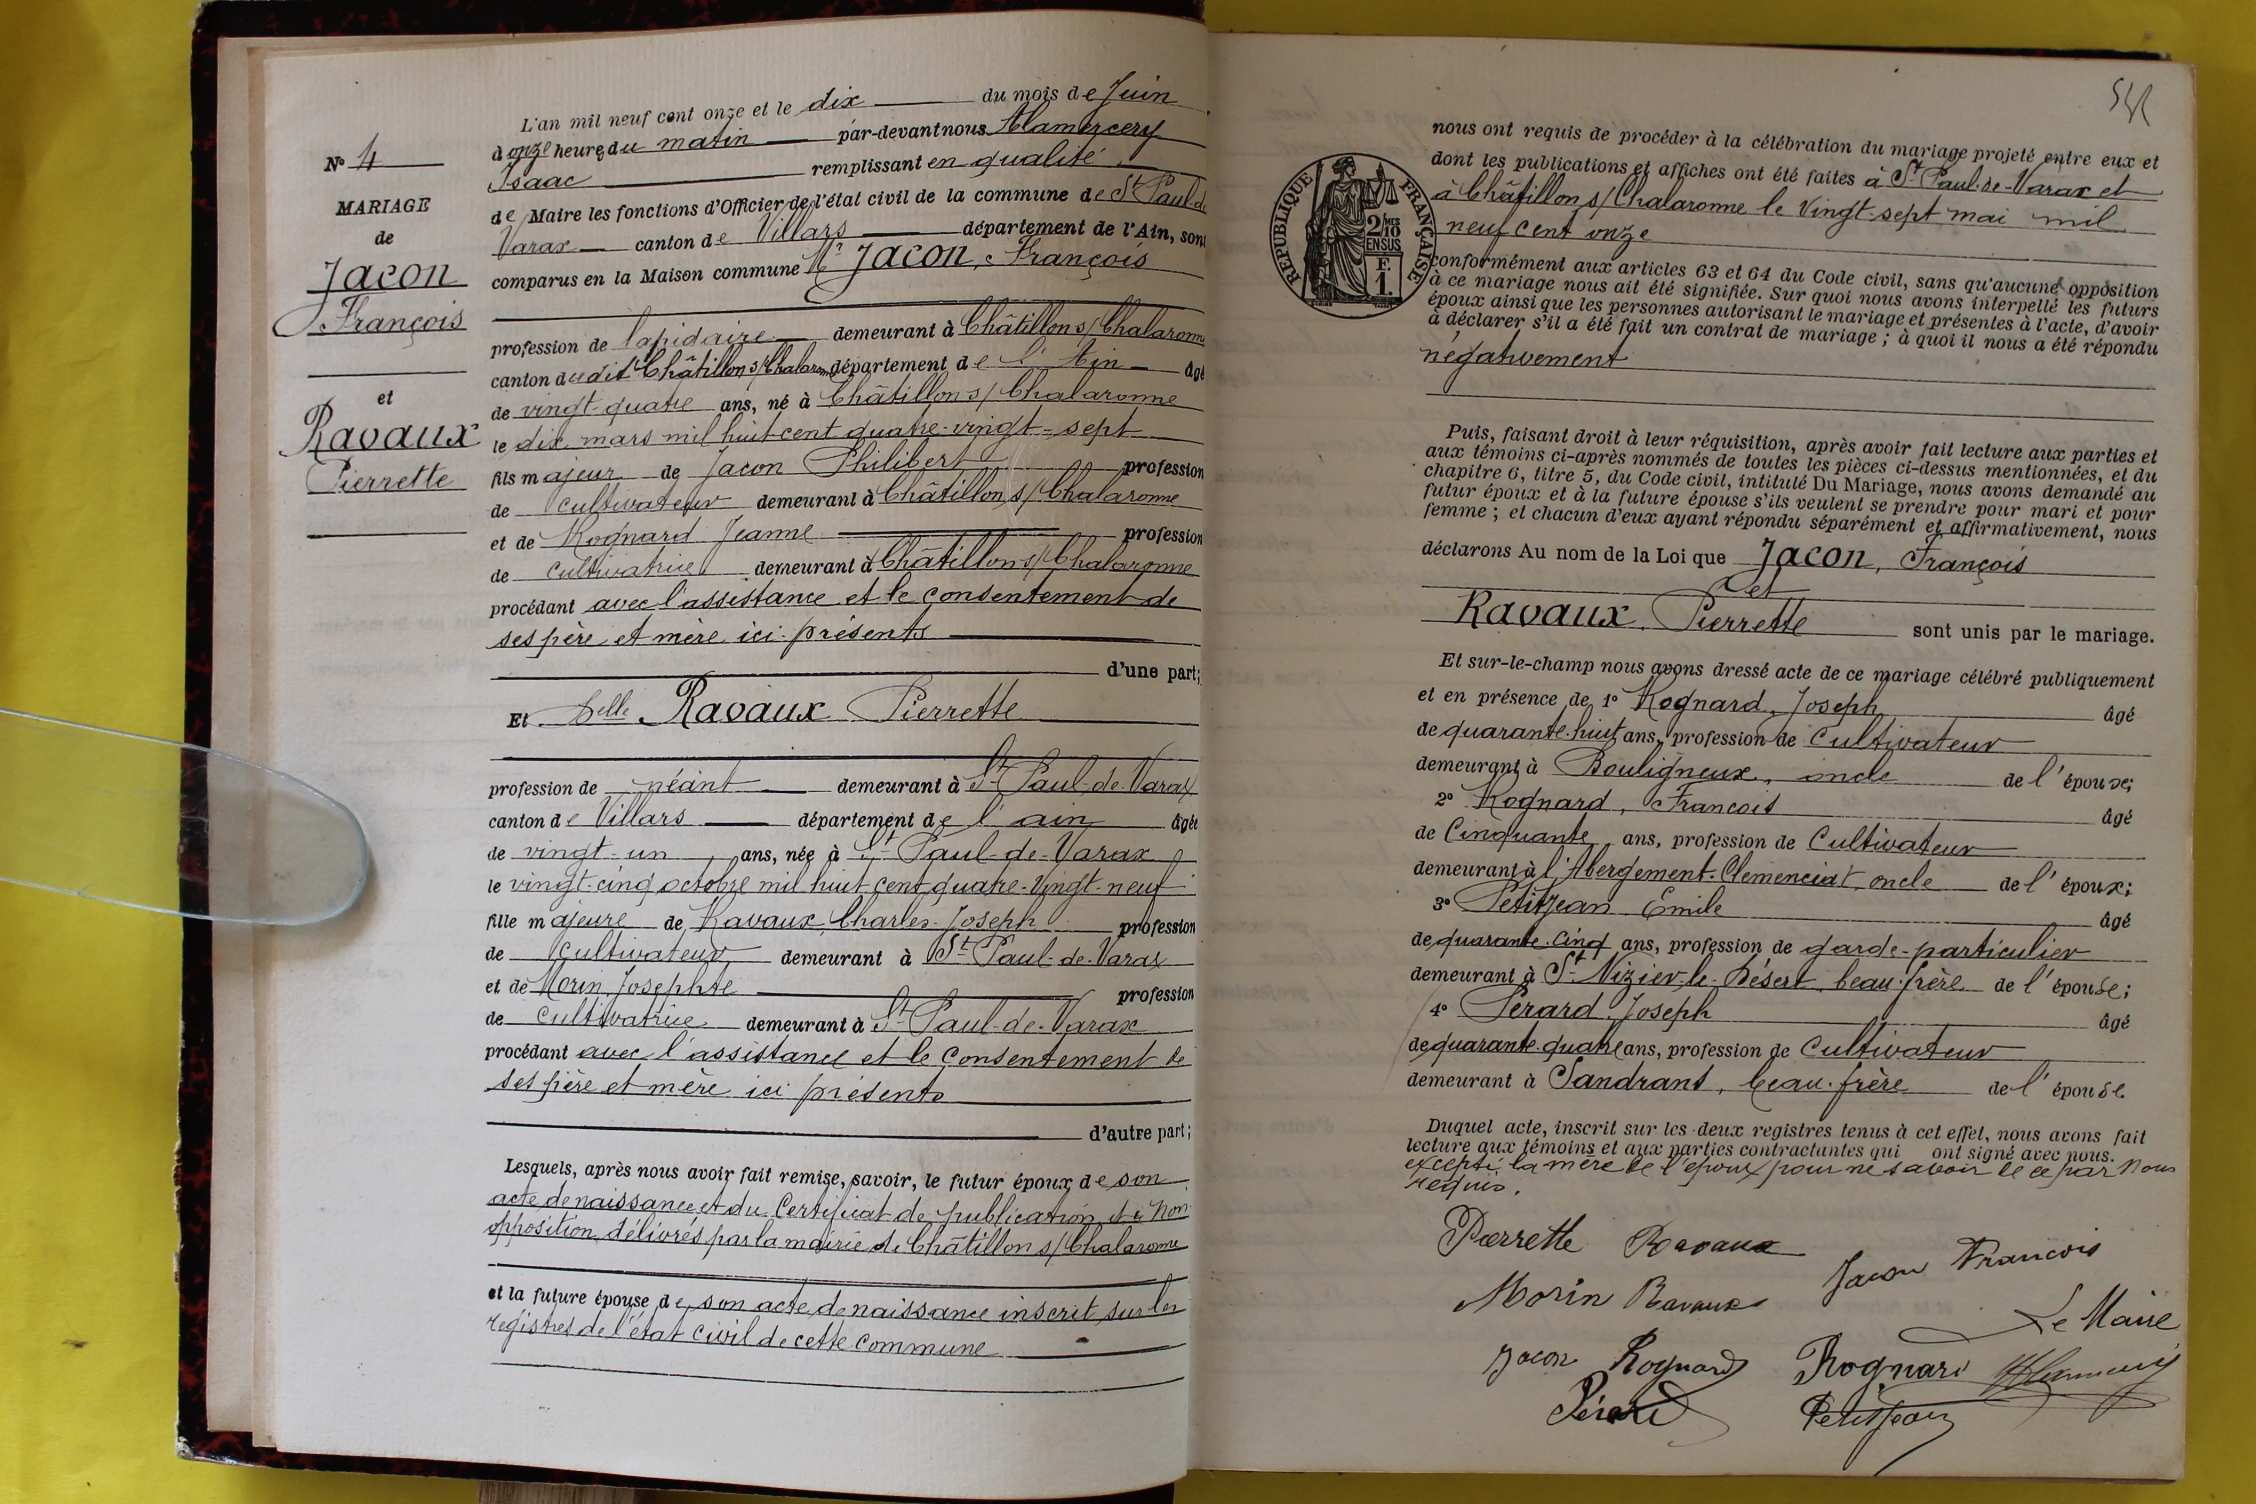 L'an mil neuf cent onze et le dix du mois de Juin
à onze heures du matin par-devant nous Alamercery
Isaac remplissant en qualité
de Maire les fonctions d'Officier de l'état civil de la commune de St Paul-de
Varax canton de Villars département de l'Ain, sont
comparus en la Maison commune Mr Jacon, François
N° 4
MARIAGE
de
Jacon
François
et
Ravaux
Pierrette
profession de lapidaire demeurant à Châtillon s/Chalaronne
canton dudit Châtillon s/Chalaronne département de l'Ain âgé
de vingt-quatre ans, né à Châtillon s/Chalaronne
le dix mars mil huit-cent quatre-vingt-sept
fils majeur de Jacon Philibert profession
de cultivateur demeurant à Châtillon s/Chalaronne
et de Rognard Jeanne profession
de cultivatrice demeurant à Châtillon s/Chalaronne
procédant avec l'assistance et le consentement de
ses père et mère ici présents
d'une part;
Et Delle Ravaux Pierrette
profession de néant demeurant à St Paul-de-Varax
canton de Villars département de l'ain âgée
de vingt-un ans, née à St Paul-de-Varax
le vingt-cinq octobre mil huit cent quatre-vingt-neuf
fille majeure de Ravaux Charles-Joseph profession
de cultivateur demeurant à St Paul-de-Varax
et de Morin Josephte profession
de cultivatrice demeurant à St Paul-de-Varax
procédant avec l'assistance et le consentement de
ses père et mère ici présents
d'autre part;
Lesquels, après nous avoir fait remise, savoir, le futur époux de son
acte de naissance et du Certificat de publication et de Non
opposition délivrés par la mairie de Châtillon s/Chalaronne
et la future épouse de son acte de naissance inscrit sur les
registres de l'état civil de cette commune
nous ont requis de procéder à la célébration du mariage projeté entre eux et
dont les publications et affiches ont été faites à St Paul-de-Varax et
à Châtillon s/Chalaronne le vingt-sept mai mil
neuf cent onze
RÉPUBLIQUE FRANÇAISE
2/10
EN SUS
F.
1.
conformément aux articles 63 et 64 du Code civil, sans qu'aucune opposition
à ce mariage nous ait été signifiée. Sur quoi nous avons interpellé les futurs
époux ainsi que les personnes autorisant le mariage et présentes à l'acte, d'avoir
à déclarer s'il a été fait un contrat de mariage ; à quoi il nous a été répondu
négativement
Puis, faisant droit à leur réquisition, après avoir fait lecture aux parties et
aux témoins ci-après nommés de toutes les pièces ci-dessus mentionnées, et du
chapitre 6, titre 5, du Code civil, intitulé Du Mariage, nous avons demandé au
futur époux et à la future épouse s'ils veulent se prendre pour mari et pour
femme ; et chacun d'eux ayant répondu séparément et affirmativement, nous
déclarons Au nom de la Loi que Jacon, François
et
Ravaux Pierrette sont unis par le mariage.
Et sur-le-champ nous avons dressé acte de ce mariage célébré publiquement
et en présence de 1° Rognard, Joseph âgé
de quarante-huit ans, profession de cultivateur
demeurant à Bouligneux, oncle de l'épouse;
2° Rognard, François âgé
de Cinquante ans, profession de Cultivateur
demeurant à l'Abergement-Clemenciat, oncle de l'époux;
3° Petitjean Émile âgé
de quarante-cinq ans, profession de garde-particulier
demeurant à St Nizier-le-Désert beau-frère de l'épouse;
4° Perard Joseph âgé
de quarante-quatre ans, profession de Cultivateur
demeurant à Sandrans, beau-frère de l'épouse.
Duquel acte, inscrit sur les deux registres tenus à cet effet, nous avons fait
lecture aux témoins et aux parties contractantes qui ont signé avec nous.
excepté la mère de l'époux pour ne savoir de ce par nous
requis.
Pierrette Ravaux
Jacon François
Morin Ravaux
Le Maire
Jacon Rognard Rognard
Pérard Petitjean